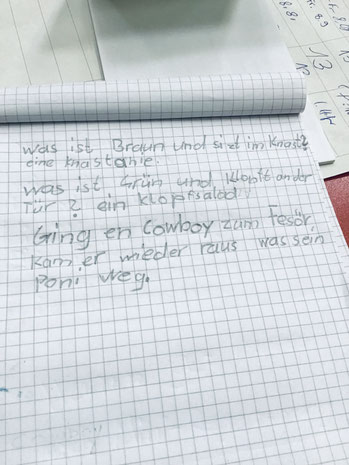 was ist Braun und sizt im Knast?
eine knastanie.
was ist Grün und klopft an der
Tür? ein klopfsalad!
Ging en Cowboy zum Fesör,
kam er wieder raus was sein
Poni weg.